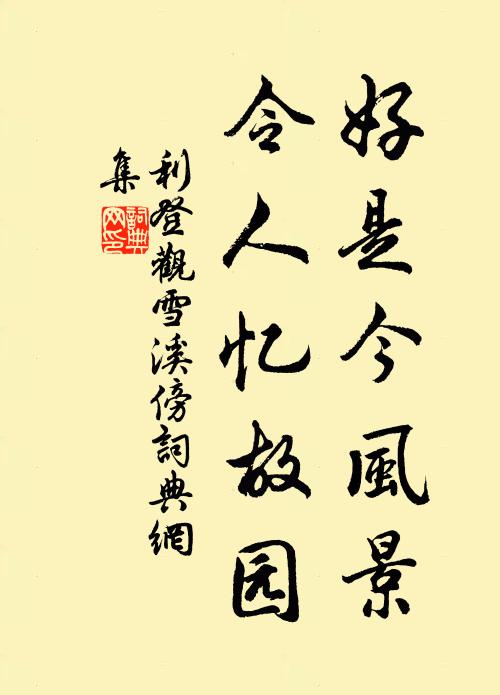 好是今風景
令人忆故园
利登觀雪溪傍詞典網
集
詞典
网印